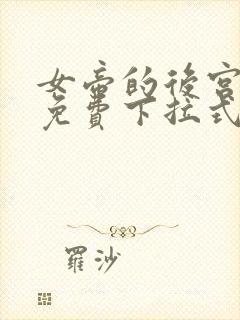 女帝的後宮
免費下拉式
羅沙